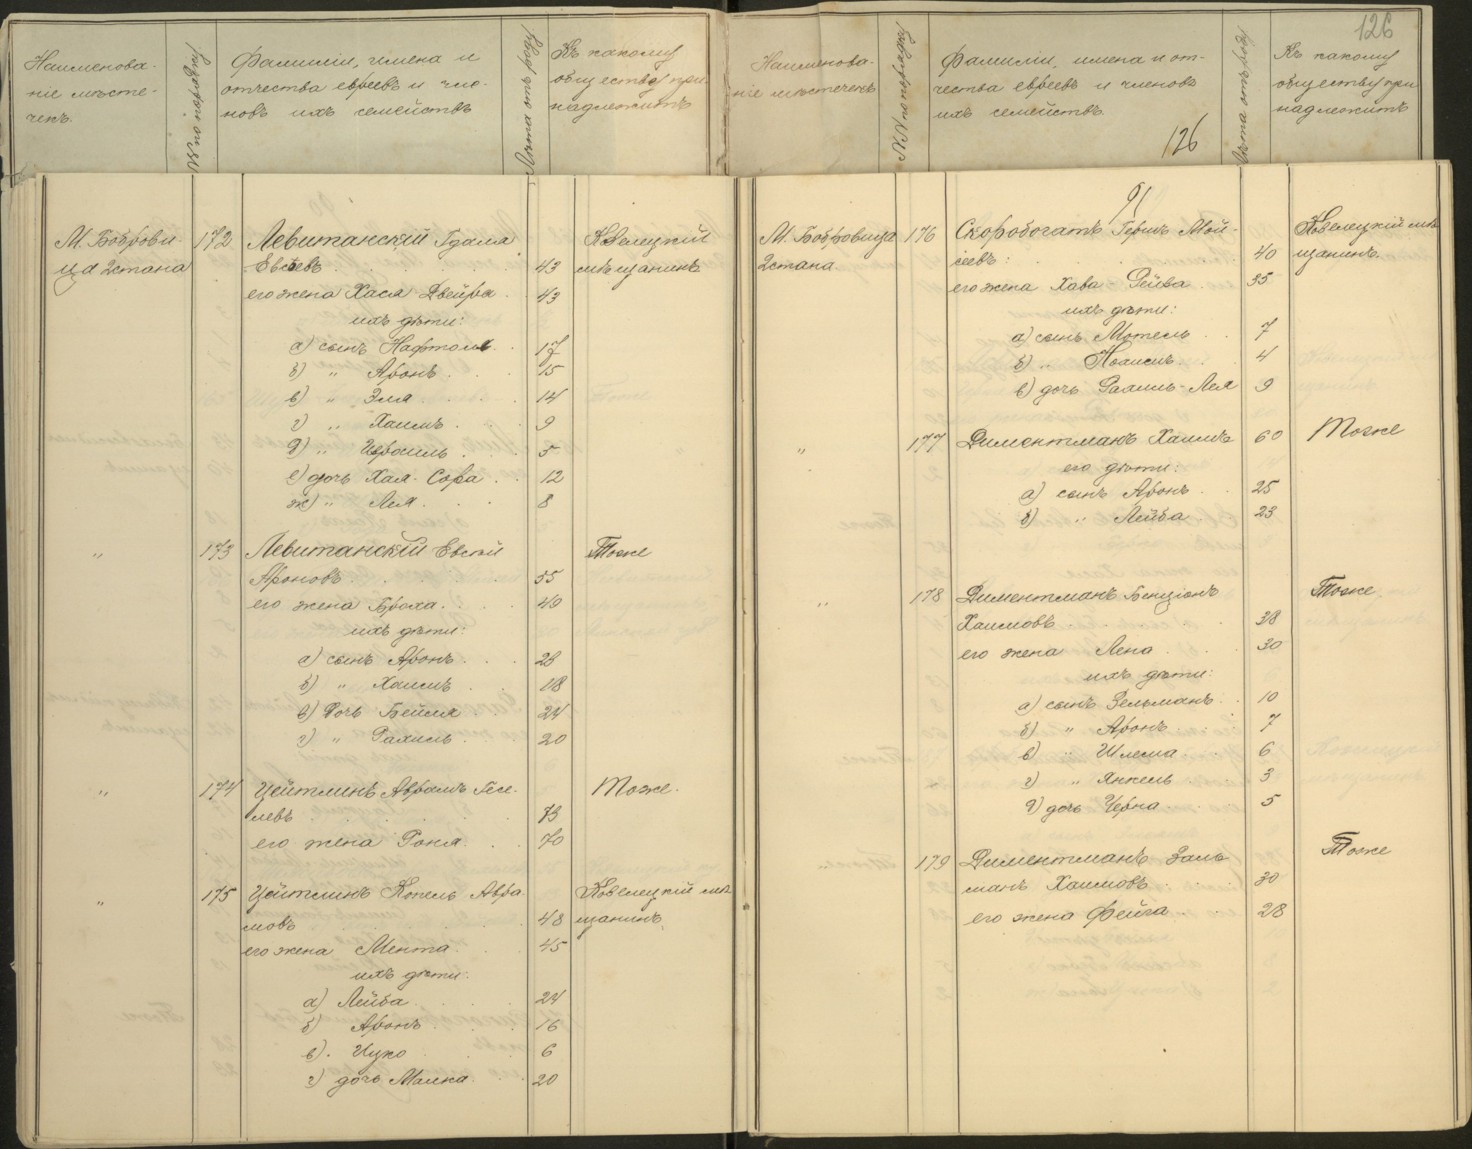 Наименова-
ніе мѣсте-
чекъ.
№ по порядку
Фамиліи, имена и
отчества евреевъ и чле-
новъ ихъ семействъ
Лѣта отъ роду
Къ какому
обществу при
надлежитъ
М. Боброви-
ца 2 стана
172
Левитанскій Гдаля
Евсѣевъ 43
Кобелецкій
мѣщанинъ
его жена Хася Двейра 43
ихъ дѣти:
а) сынъ Нафтоль 17
б) „ Аронъ 15
в) „ Эля 14
г) „ Хаимъ 9
д) „ Израиль 5
е) дочь Хая-Сора 12
ж) „ Лея 8
„ 173 Левитанскій Евсѣй Тоже
Ароновъ 55
его жена Броха 40
ихъ дѣти:
а) сынъ Аронъ 28
б) „ Хаимъ 18
в) Дочь Бейля 24
г) „ Рахиль 20
„ 174 Цейтлинъ Аврамъ Гесе- Тоже.
левъ 73
его жена Роня 70
„ 175 Цейтлинъ Копель Авра Кобелецкій мѣ
мовъ 48 щанинъ
его жена Мента 45
ихъ дѣти:
а) Лейба 24
б) Аронъ 16
в) Ицко 6
г) дочь Малка 20
126
Наименова-
ніе мѣстечекъ
№№ по порядку
Фамиліи, имена и от-
чества евреевъ и членовъ
ихъ семействъ.
126
Лѣта отъ роду
Къ какому
обществу при
надлежитъ
91
М. Бобровица 176 Скоробогатъ Гершъ Мой- Кобелецкій мѣ
2 стана сеевъ 40 щанинъ.
его жена Хава-Рейза 35
ихъ дѣти:
а) сынъ Мотель 7
б) „ Ноаимъ 4
в) дочь Рахиль-Лея 9
„ 177 Диментманъ Хаимъ 60 Тоже
его дѣти:
а) сынъ Аронъ 25
б) „ Лейба 23
„ 178 Диментманъ Бенціонъ Тоже
Хаимовъ 38
его жена Лена 30
ихъ дѣти:
а) сынъ Зельманъ 10
б) „ Аронъ 7
в) „ Шлема 6
г) „ Янкель 3
д) дочь Черна 5
179 Диментманъ Заль Тоже
манъ Хаимовъ 30
его жена Фейга 28